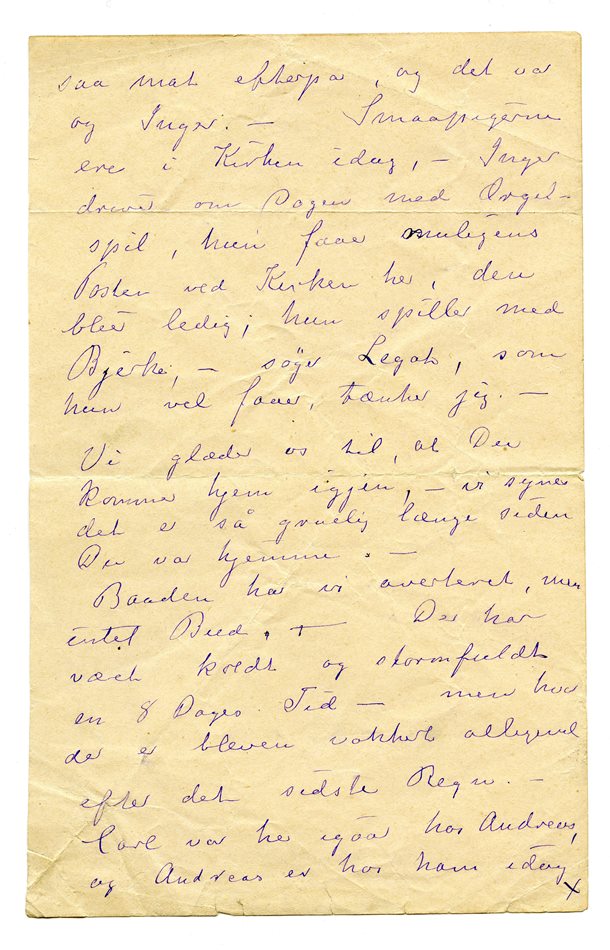 saa mat efterpa, og det var
og Inger. — Smaapigerne
ere i Kirken idag, — Inger
driver om Dagen med Orgel-
spil, hun faar muligens
Posten ved Kirken her, den
blir ledig; hun spiller med
Bjerke, — søger Legat, som
hun vel faar, tænker jeg. —
Vi glæder os til, at Du
kommer hjem igjen, — vi synes
det er så gruelig længe siden
Du var hjemme. —
Baaden har vi averteret, men
intet Bud. — Der har
været koldt og stormfuldt
en 8 Dages Tid — men hvor
der er bleven vakkert alligevel
efter det sidste Regn. —
Carl var her igaar hos Andreas,
og Andreas er hos ham idag
x